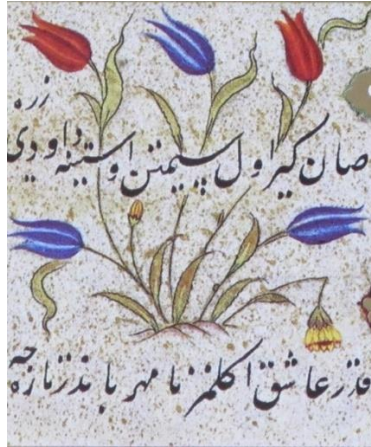 صان کیر اول سیمتن اوستینه داودی زره
قدر عاشق اکلمز نا مهرباندر